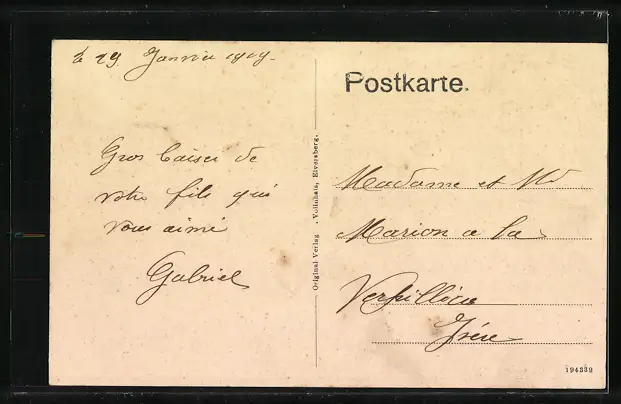 le 29 Janvier 1919.
Gros baiser de
votre fils qui
vous aime
Gabriel
Original Verlag . Vollnhals, Elversberg.
Postkarte.
Madame et Mr
Marion a la
Verpillière
Isère
194339